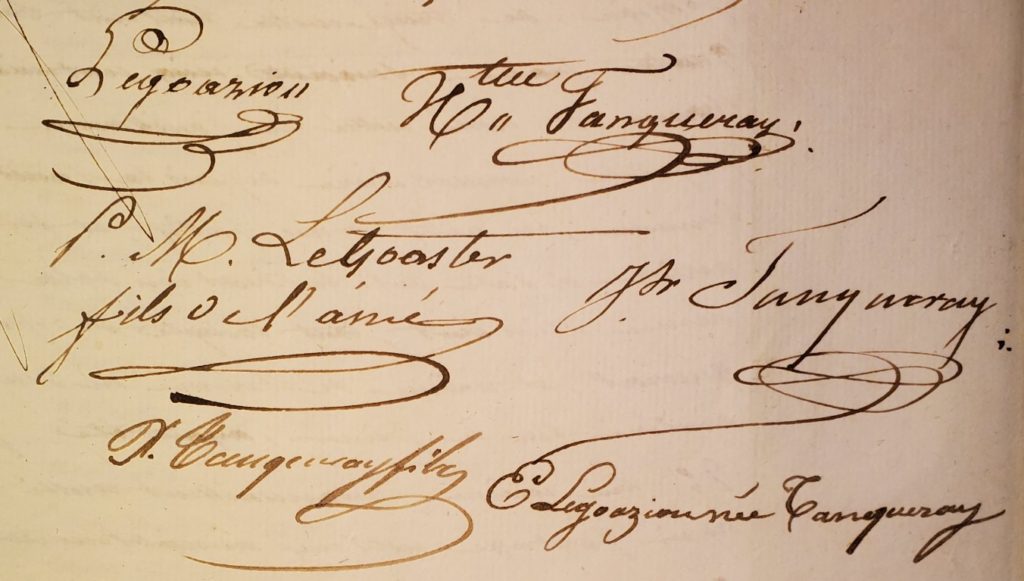 Legoaziou
H^tte Tanqueray
P. M. LeGoaster
fils d l'ainé
Jh Tanqueray
P. Tanqueray fils
E Legoaziou née Tanqueray